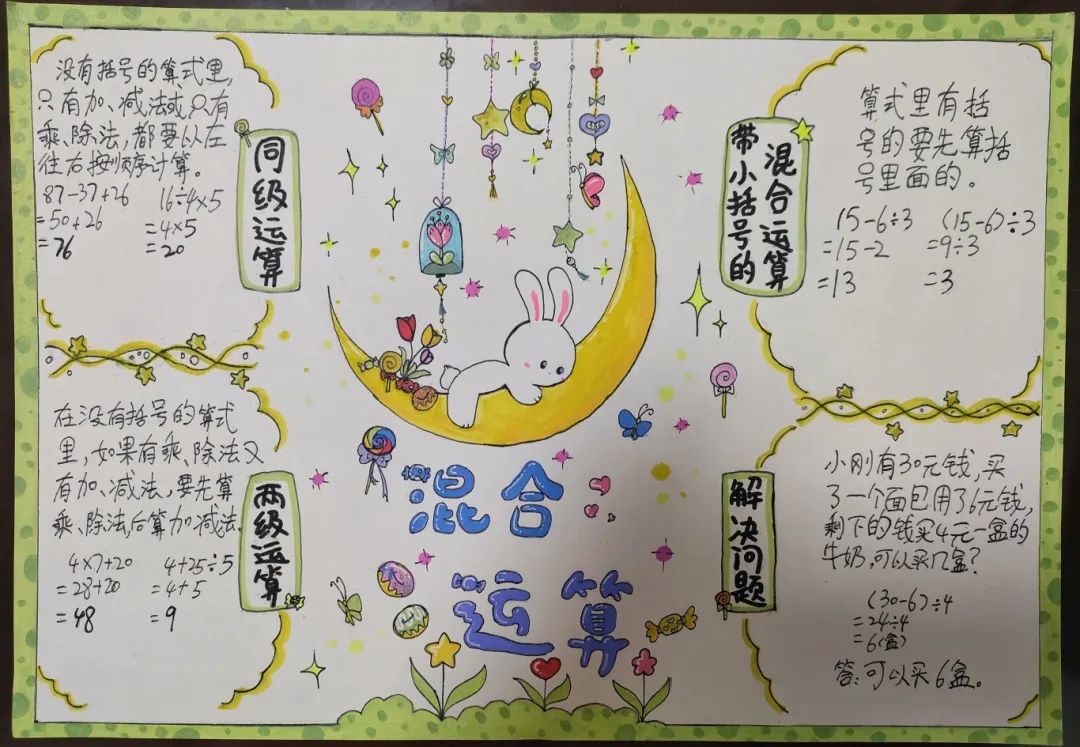 没有括号的算式里,
只有加、减法或只有
乘、除法,都要从左
往右按顺序计算。
87-37+26 16÷4×5
=50+26 =4×5
=76 =20
同级运算
在没有括号的算式
里,如果有乘、除法又
有加、减法,要先算
乘、除法,后算加减法。
4×7+20 4+25÷5
=28+20 =4+5
=48 =9
两级运算
混合
运算
带小括号的
混合运算
算式里有括
号的要先算括
号里面的。
15-6÷3 (15-6)÷3
=15-2 =9÷3
=13 =3
解决问题
小刚有30元钱,买
了一个面包用了6元钱,
剩下的钱买4元一盒的
牛奶,可以买几盒?
(30-6)÷4
=24÷4
=6(盒)
答:可以买6盒。